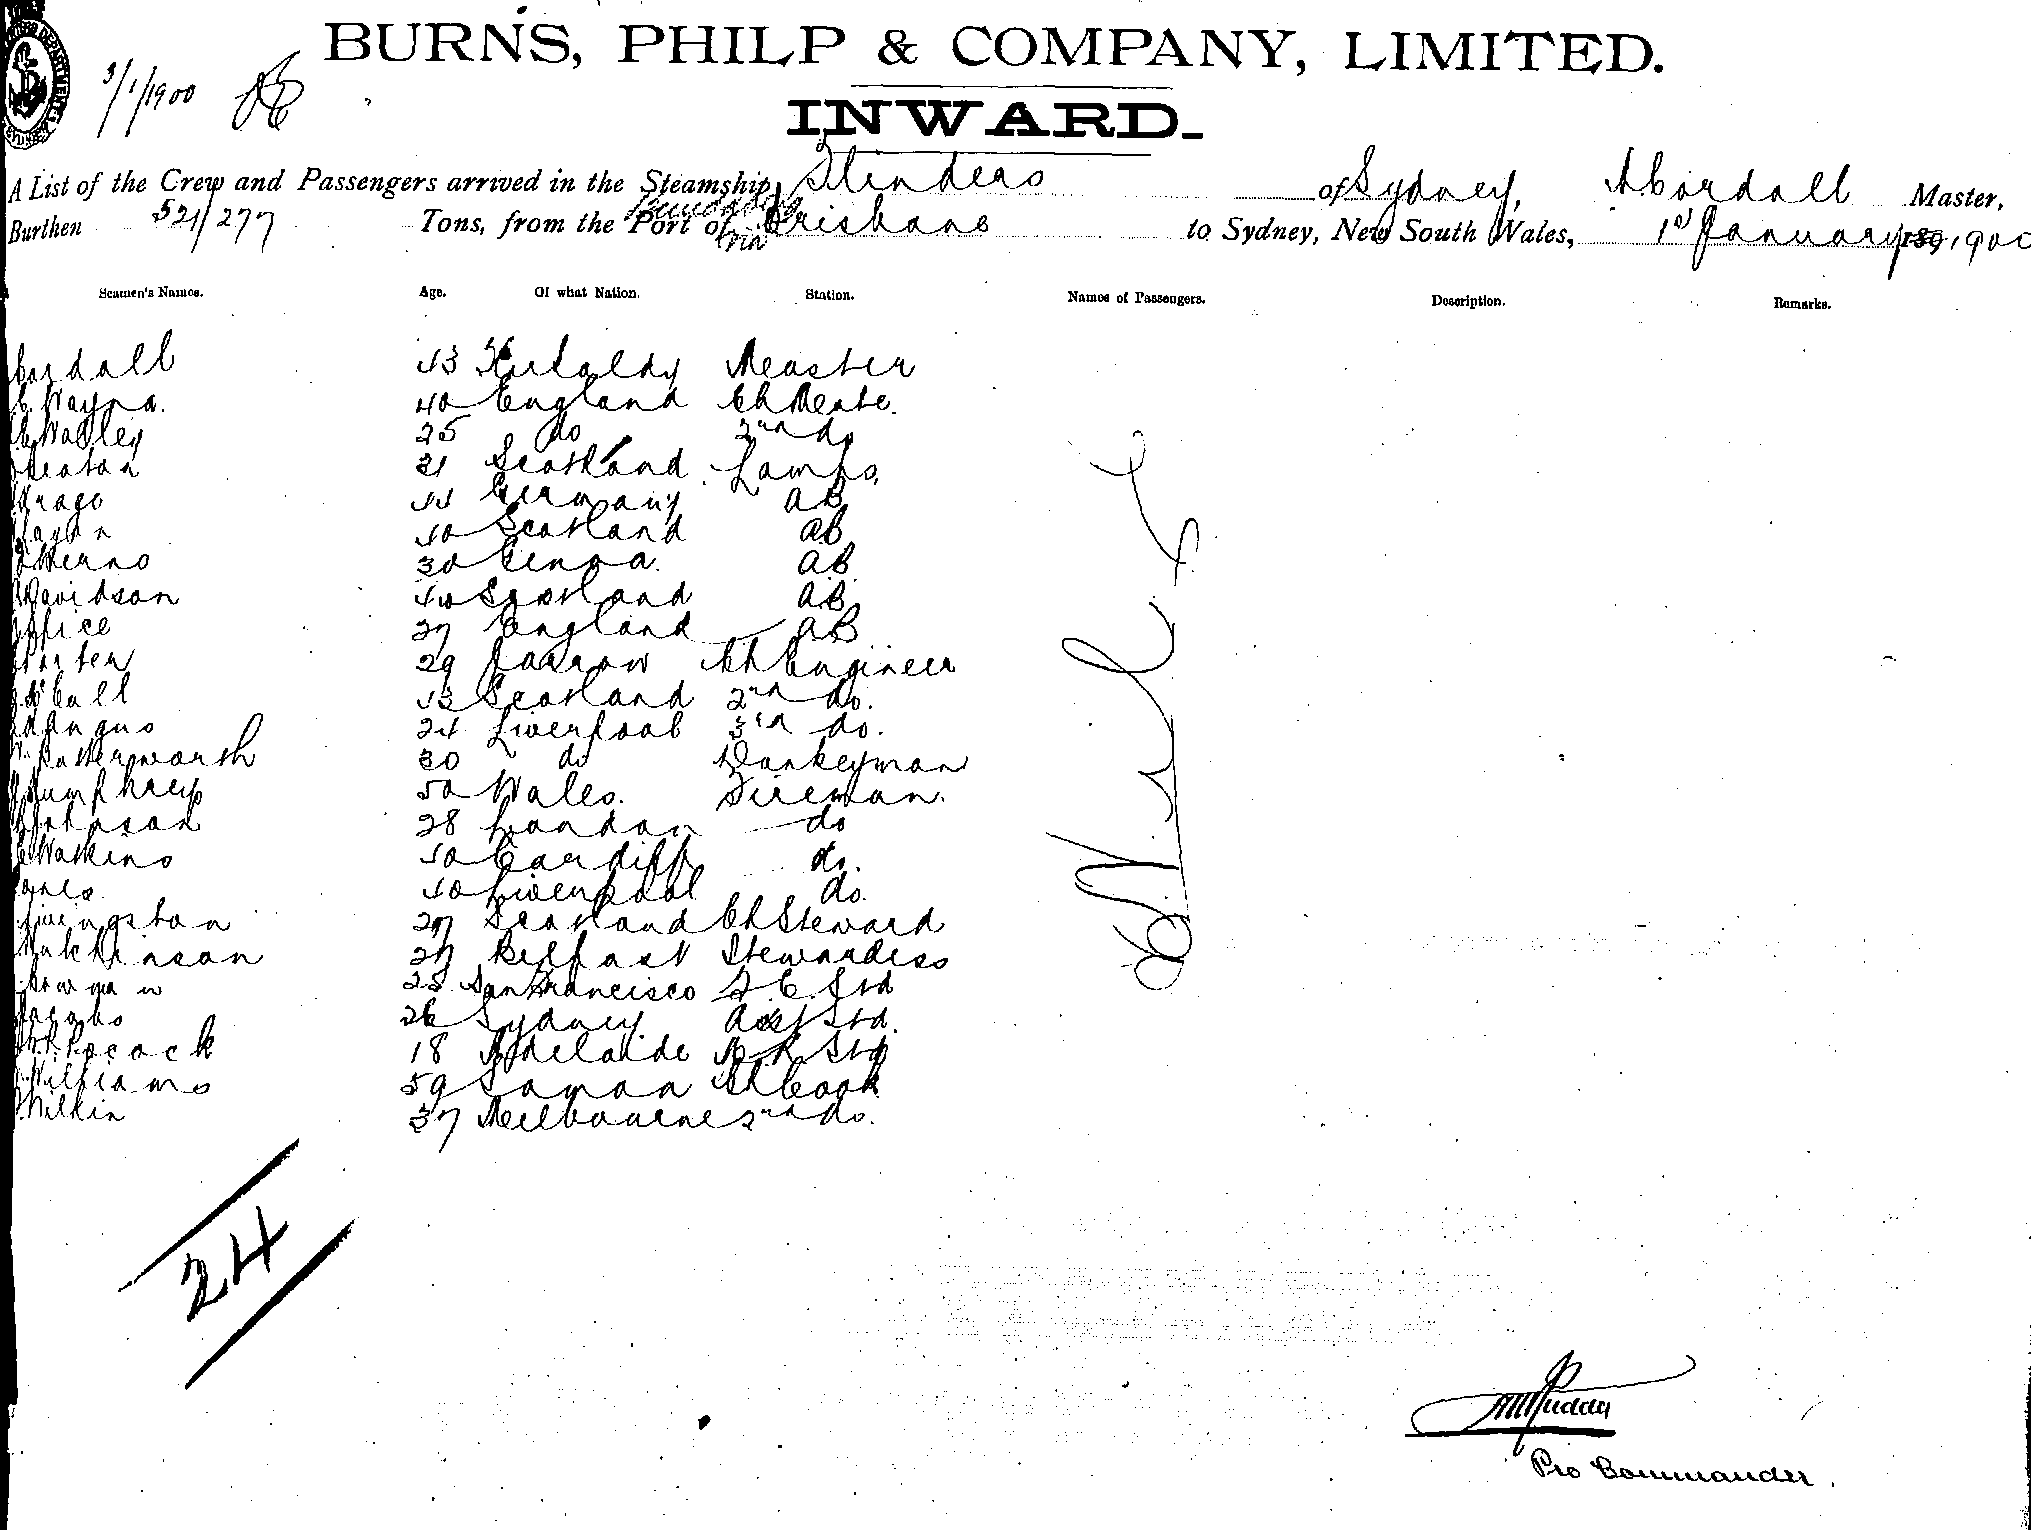 BURNS, PHILP & COMPANY, LIMITED.
3/1/1900
INWARD.
A List of the Crew and Passengers arrived in the Steamship Flinders of Sydney, A Cordall Master,
Burthen 521/277 Tons, from the Port of Bundaberg via Brisbane to Sydney, New South Wales, 1st January 189 1900
Seamen's Names. Age. Of what Nation. Station. Names of Passengers. Description. Remarks.
Cordall 43 Kirkaldy Master
Wayne. 40 England Ch Mate.
Wolley 25 do 2nd do
31 Scotland Lamps,
44 Germany AB
40 Scotland AB
30 Genoa. AB
Davidson 40 Scotland AB
Office 27 England AB
Porter 29 Jarrow Ch Engineer
43 Scotland 2nd do.
Angus 24 Liverpool 3rd do.
Butterworth 30 do Donkeyman
Humphreys 50 Wales. Fireman.
Johnson 28 London do
Watkins 40 Cardiff do.
40 Liverpool do.
Livingston 27 Scotland Ch Steward
Hutchinson 27 Belfast Stewardess
25 San Francisco F. C. Std
Jacobs 26 Sydney Asst Std.
18 Adelaide M. R Std
Williams 59 Samoa Ch Cook
Wilkin 37 Melbourne 2nd do.
Nil
24
Pro Commander.